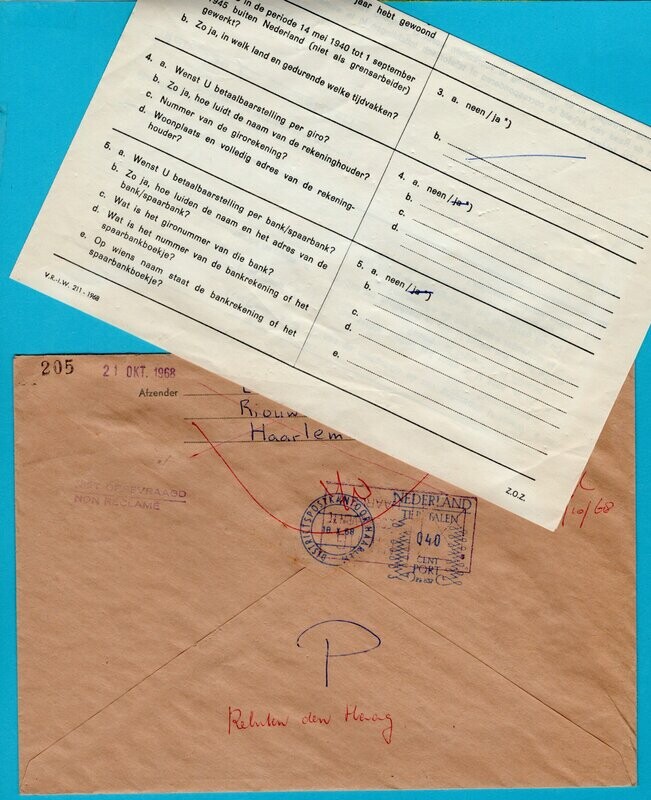 jaar hebt gewoond
in de periode 14 mei 1940 tot 1 september
1945 buiten Nederland (niet als grensarbeider)
gewerkt?
b. Zo ja, in welk land en gedurende welke tijdvakken?
3. a. neen/ja *)
b.
4. a. Wenst U betaalbaarstelling per giro?
b. Zo ja, hoe luidt de naam van de rekeninghouder?
c. Nummer van de girorekening?
d. Woonplaats en volledig adres van de rekening-
houder?
4. a. neen/ja *)
b.
c.
d.
5. a. Wenst U betaalbaarstelling per bank/spaarbank?
b. Zo ja, hoe luiden de naam en het adres van de
bank/spaarbank?
c. Wat is het gironummer van die bank?
d. Wat is het nummer van de bankrekening of het
spaarbankboekje?
e. Op wiens naam staat de bankrekening of het
spaarbankboekje?
5. a. neen/ja *)
b.
c.
d.
e.
V.R.-I.W. 211 - 1968
Z.O.Z.
205
21 OKT. 1968
Afzender
Riouw
Haarlem
NIET GEVRAAGD
NON RECLAME
DISTRICTSPOSTKANTOOR HAARLEM
18 X 68
NEDERLAND
TE BETALEN
040
CENT
PORT
10/68
P
Rebuten den Haag